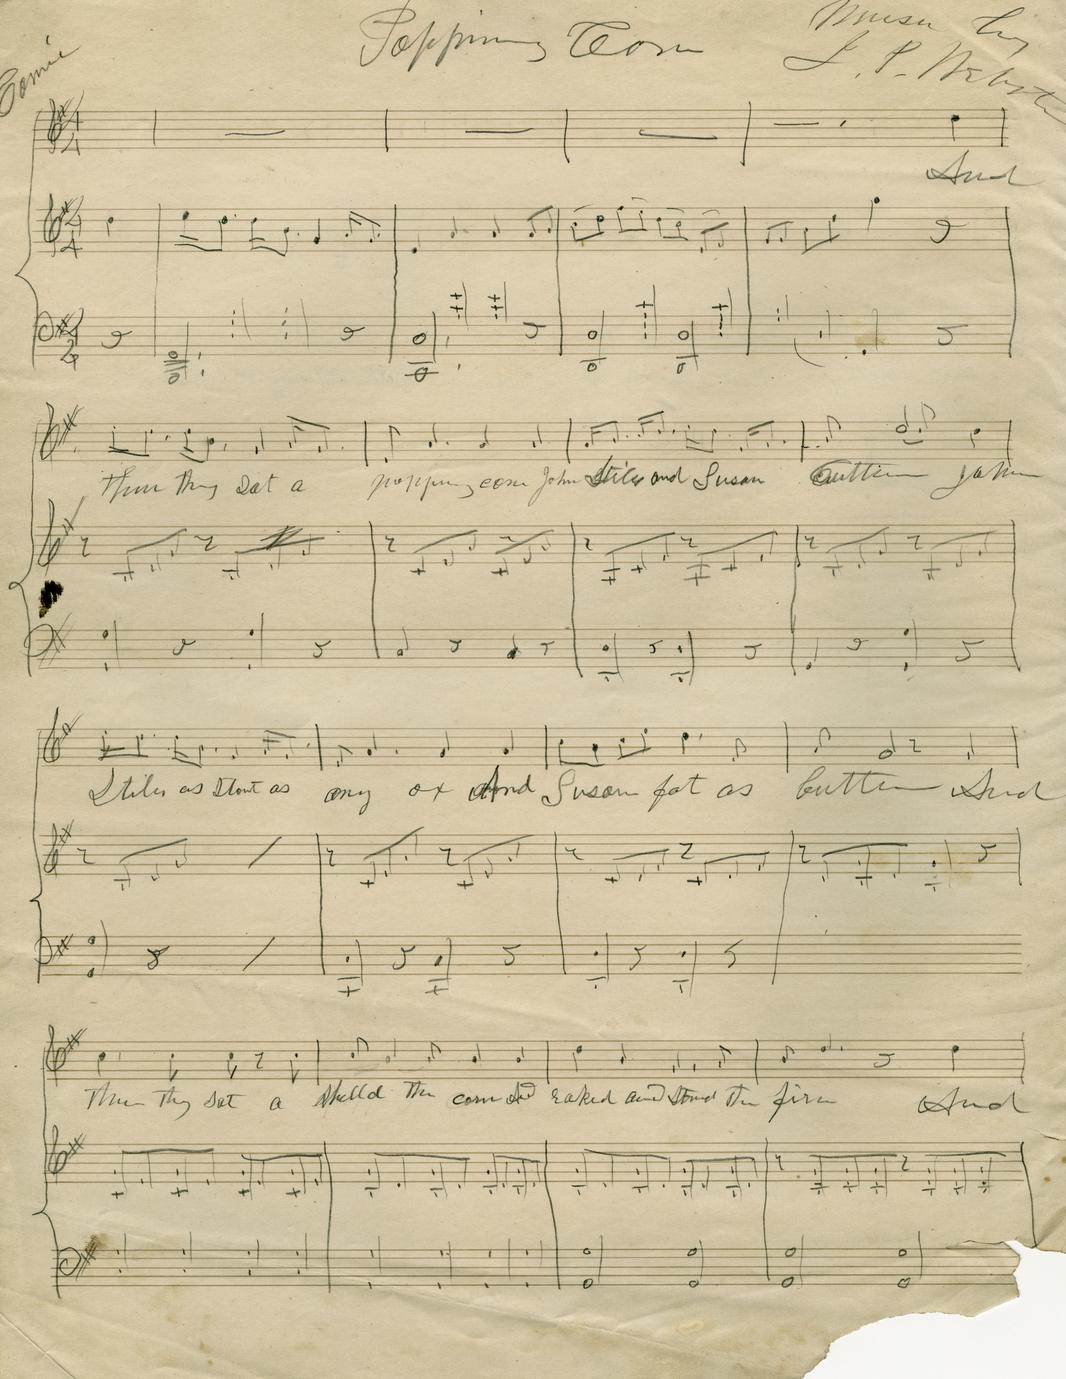 Comic
Popping Corn
Music by
J. P. Webster
And
there they sat a popping corn John Stiles and Susan Cutter John
Stiles as stout as any ox And Susan fat as butter And
there they sat a shelld the corn And raked and stired the fire And